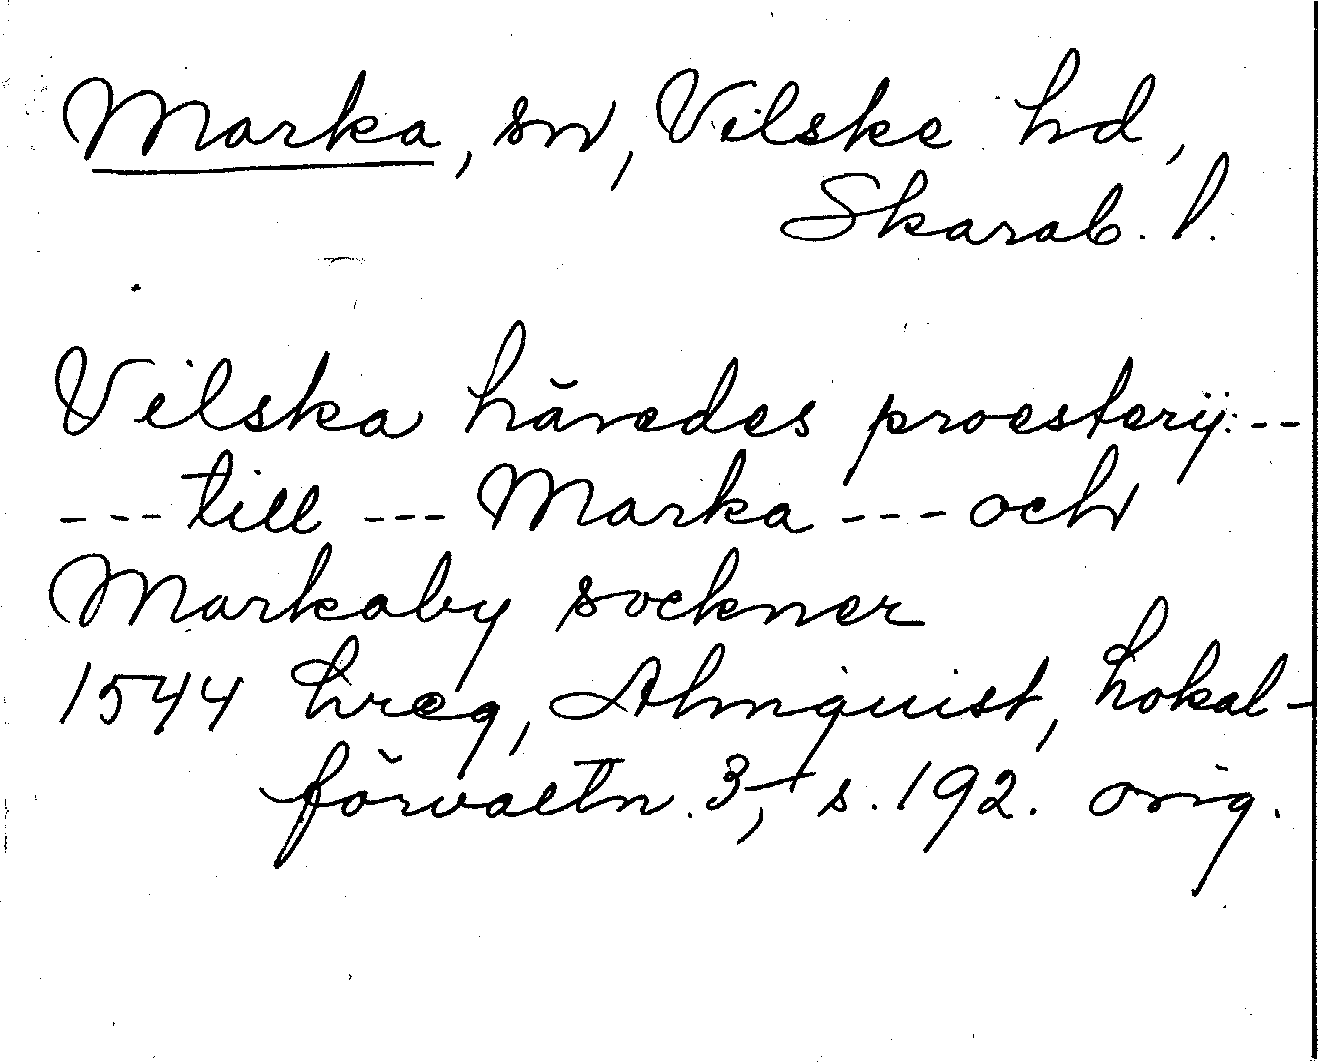 Marka, sn, Vilske hd,
Skarab. l.
Vilska häredes proesterij:--
--- till --- Marka --- och
Markaby sockner
1544 hreg, Almquist, Lokal-
förvaltn. 3, s. 192. orig.